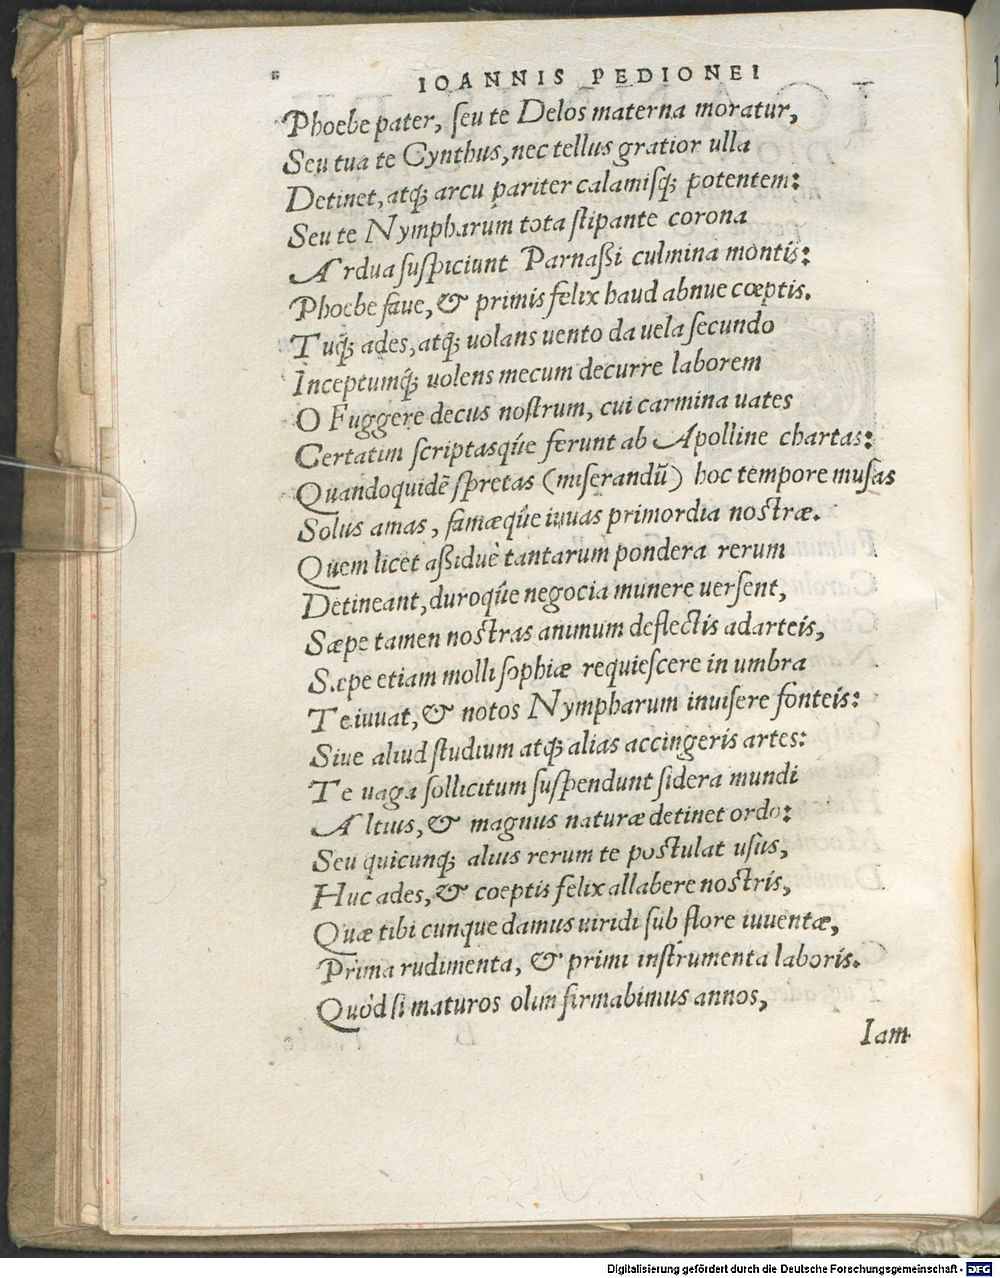 IOANNIS PEDIONEI
Phoebe pater, ſeu te Delos materna moratur,
Seu tua te Cynthus, nec tellus gratior ulla
Detinet, atq́; arcu pariter calamiſq́; potentem:
Seu te Nympharum tota ſtipante corona
Ardua ſuſpiciunt Parnaßi culmina montis:
Phoebe faue, & primis felix haud abnue cœptis.
Tuq́; ades, atq́; uolans uento da uela ſecundo
Inceptumq́; uolens mecum decurre laborem
O Fuggere decus noſtrum, cui carmina uates
Certatim ſcriptasq́ue ferunt ab Apolline chartas:
Quandoquidē ſpretas (miſerandū) hoc tempore muſas
Solus amas, famæq́ue iuuas primordia noſtræ.
Quem licet aßiduè tantarum pondera rerum
Detineant, duroq́ue negocia munere uerſent,
Sæpe tamen noſtras animum deflectis ad arteis,
Sæpe etiam molli ſophiæ requieſcere in umbra
Te iuuat, & notos Nympharum inuiſere fonteis:
Siue aliud ſtudium atq́; alias accingeris artes:
Te uaga ſollicitum ſuſpendunt ſidera mundi
Altius, & magnus naturæ detinet ordo:
Seu quicunq́; alius rerum te poſtulat uſus,
Huc ades, & coeptis felix allabere noſtris,
Quæ tibi cunque damus uiridi ſub flore iuuentæ,
Prima rudimenta, & primi inſtrumenta laboris.
Quòd ſi maturos olim firmabimus annos,
Iam
Digitalisierung gefördert durch die Deutsche Forschungsgemeinschaft - DFG